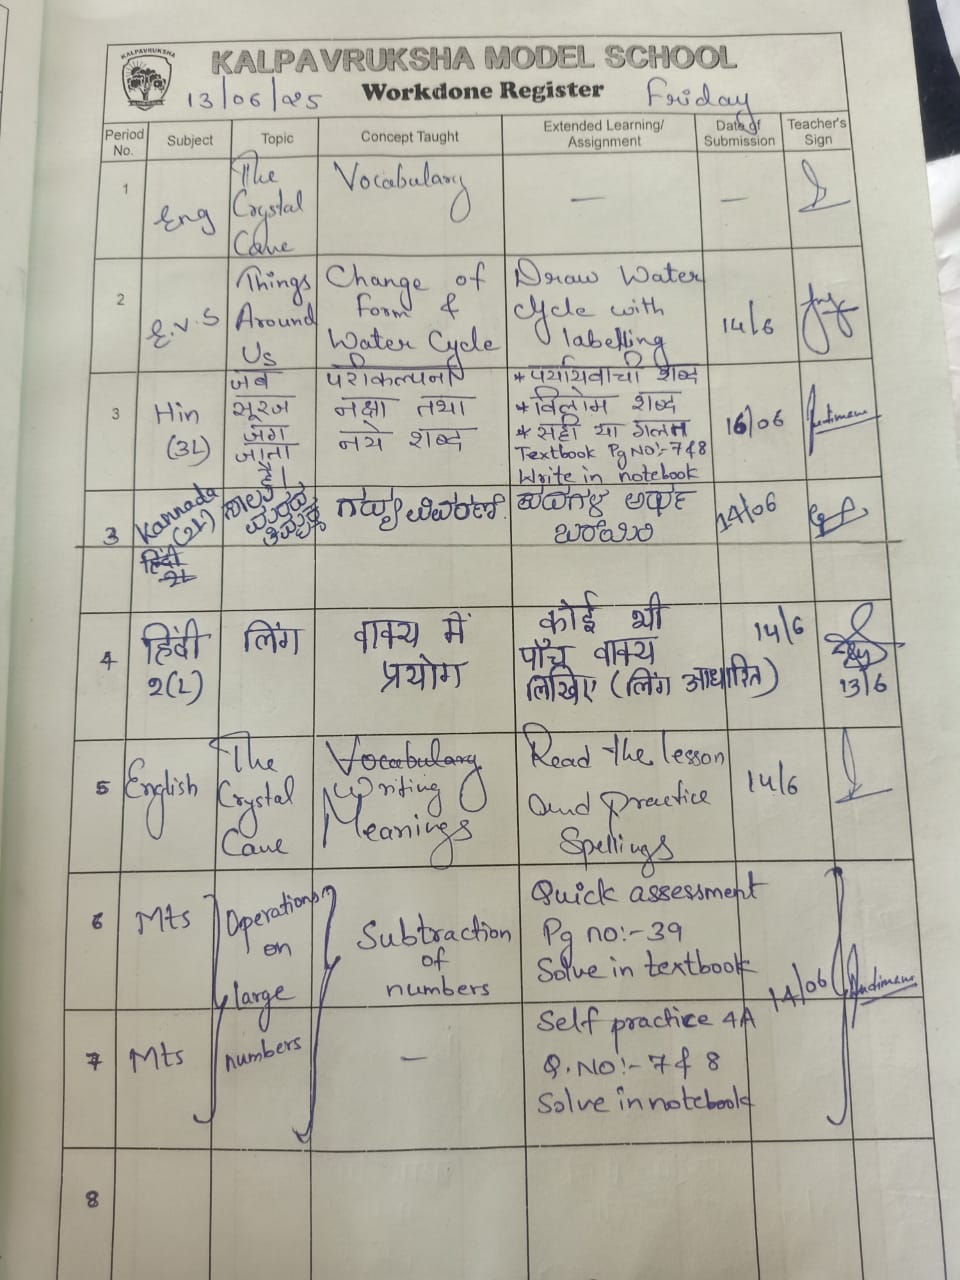 KALPAVRUKSHA
KALPAVRUKSHA MODEL SCHOOL
13/06/25 Workdone Register Friday
Period No. Subject Topic Concept Taught Extended Learning/ Assignment Date of Submission Teacher's Sign
1 Eng The Crystal Cave Vocabulary — —
2 E.V.S Things Around Us Change of Form & Water Cycle Draw Water Cycle with labelling 14/6
3 Hin (3L) जब सूरज जग जाता है। परिकल्पना नक्षा तथा नये शब्द
* पर्यायवाची शब्द
* विलोम शब्द
* सही या गलत
Textbook Pg No:- 7 & 8
Write in notebook
16/06
3 Kannada (2L) ಗದ್ಯ ವಿವರಣೆ. ಪದಗಳ ಅರ್ಥ ಬರೆಯಿರಿ 14/06
हिंदी 2L
4 हिंदी 2(L) लिंग वाक्य में प्रयोग कोई भी पाँच वाक्य लिखिए (लिंग आधारित) 14/6
13/6
5 English The Crystal Cave Vocabulary Writing Meanings Read the lesson and practice Spellings 14/6
6 Mts Operations on large numbers Subtraction of numbers
Quick assessment
Pg no:- 39
Solve in textbook
14/06
7 Mts —
Self practice 4A
Q.No:- 7 & 8
Solve in notebook
8